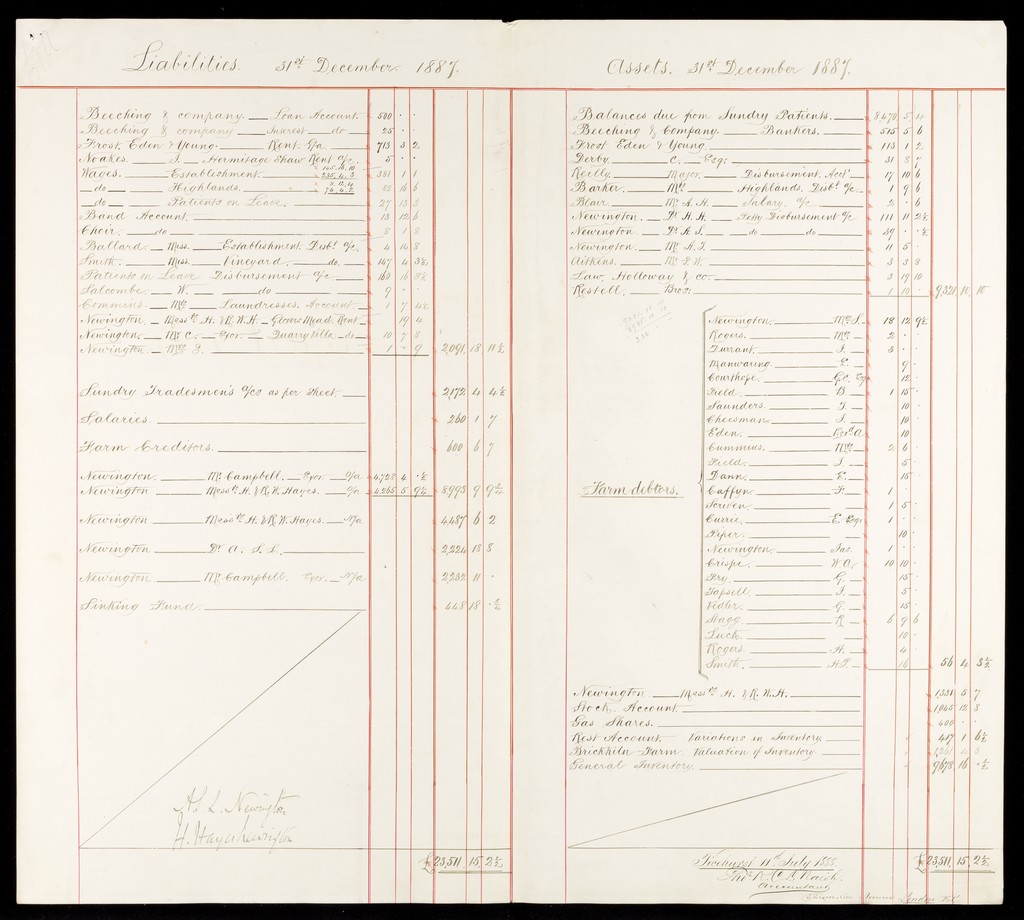 Liabilities. 31st December. 1887.
Beeching & company. Loan Account. 500 . .
Beeching & company Interest do 25 . .
Frost, Eden & Young. Rent. a/c 713 3 2
Noakes. J. Hermitage Shaw Rent a/c. 5 . .
Wages. Establishment. 381 1 1
do Highlands. 82 16 6
do Patients on Leave. 27 13 3
Band Account. 13 12 6
Choir. do 8 1 8
Ballard. Miss. Establishment. Disbt. a/c. 4 14 8
Smith. Miss. Vineyard. do.
Patients on Leave Disbursement a/c
Salcombe. W. do 9 . .
Commens. Mrs. Laundresses. Account.
Newington. Messrs. H. & R. W. H. Glovers Mead. Rent 19 4
Newington. Mr. C. Exor. Quarry Villa. do 10 7 8
Newington. 1 . 9 2,091 18 11½
Sundry Tradesmen's a/cs as per Sheet. 2,172 4 4½
Salaries. 260 1 7
Farm Creditors. 600 6 7
Newington. Mr. Campbell. Exor. a/c 4,728 4 . ½
Newington. Messrs. H. & R. W. Hayes. a/c 4,265 5 9¼ 8,993 9 9¾
Newington Messrs. H. & R. W. Hayes. 4,487 6 2
Newington Dr. A. S. L. 2,224 18 8
Newington Mr. Campbell. Exor. 2,232 11 .
Sinking Fund. 448 18 . ¾
A. S. L. Newington
H. Hayes Newington
£23,511 15 2½
Assets. 31st December 1887.
Balances due from Sundry Patients.
Beeching & Company. Bankers. 515 5 6
Frost Eden & Young. 113 1 2
Derby. C. Esq: 31 8 7
Reilly. Major. Disbursement. Acct. 17 10 6
Barker. Mrs. Highlands. Disbt. a/c. 1 9 6
Blair. Mr. A. H. Salary. a/c 2 . 6
Newington. Dr. H. H. Petty Disbursement a/c 111 11 2½
Newington. Dr. A. S. do do 39 . . ½
Newington. Mr. H. J. 11 5 .
Aitkens. Mr. F. W. 3 3 8
Law. Holloway & co. 3 19 10
Restell. Bros: 1 10 . 9,321 10 10
Farm debtors.
Newington. 18 12 9½
Rogers. Mrs. 2 . .
Durrant. J. 3 . .
Manwaring. E. 9 .
Courthope. G.C. Esq 12 .
Field. B. 1 15 .
Saunders. J. 10 .
Cheesman. J. 10 .
Eden. Revd. A. 10 .
Cummins. Mrs. 2 6
Field. J. 5 .
Dann. E. 15 .
Caffyn. F. 1 . .
Scriven. 1 5 .
Currie. E. Esq: 1 . .
Piper. 10 .
Newington. Jas. 1 . .
Crisps. W. A. 10 10 .
Fry. G. 15 .
Tapsell. J. 5 .
Vidler. G. 15 .
Stagg. R. 6 9 6
Luck. 10 .
Rogers. A. 4 .
Smith. H.P. 16 . 56 4 3½
Newington Messrs. H. & R. W. H. 1,331 5 7
Stock. Account. 1,045 12 8
Gas Shares. 400 . .
Rest Account. Variations in Inventory. 417 1 6½
Brickkiln Farm. Valuation of Inventory.
General Inventory. 9,678 16 . ½
Ticehurst 11th July 1888.
Accountant
£23,511 15 2½